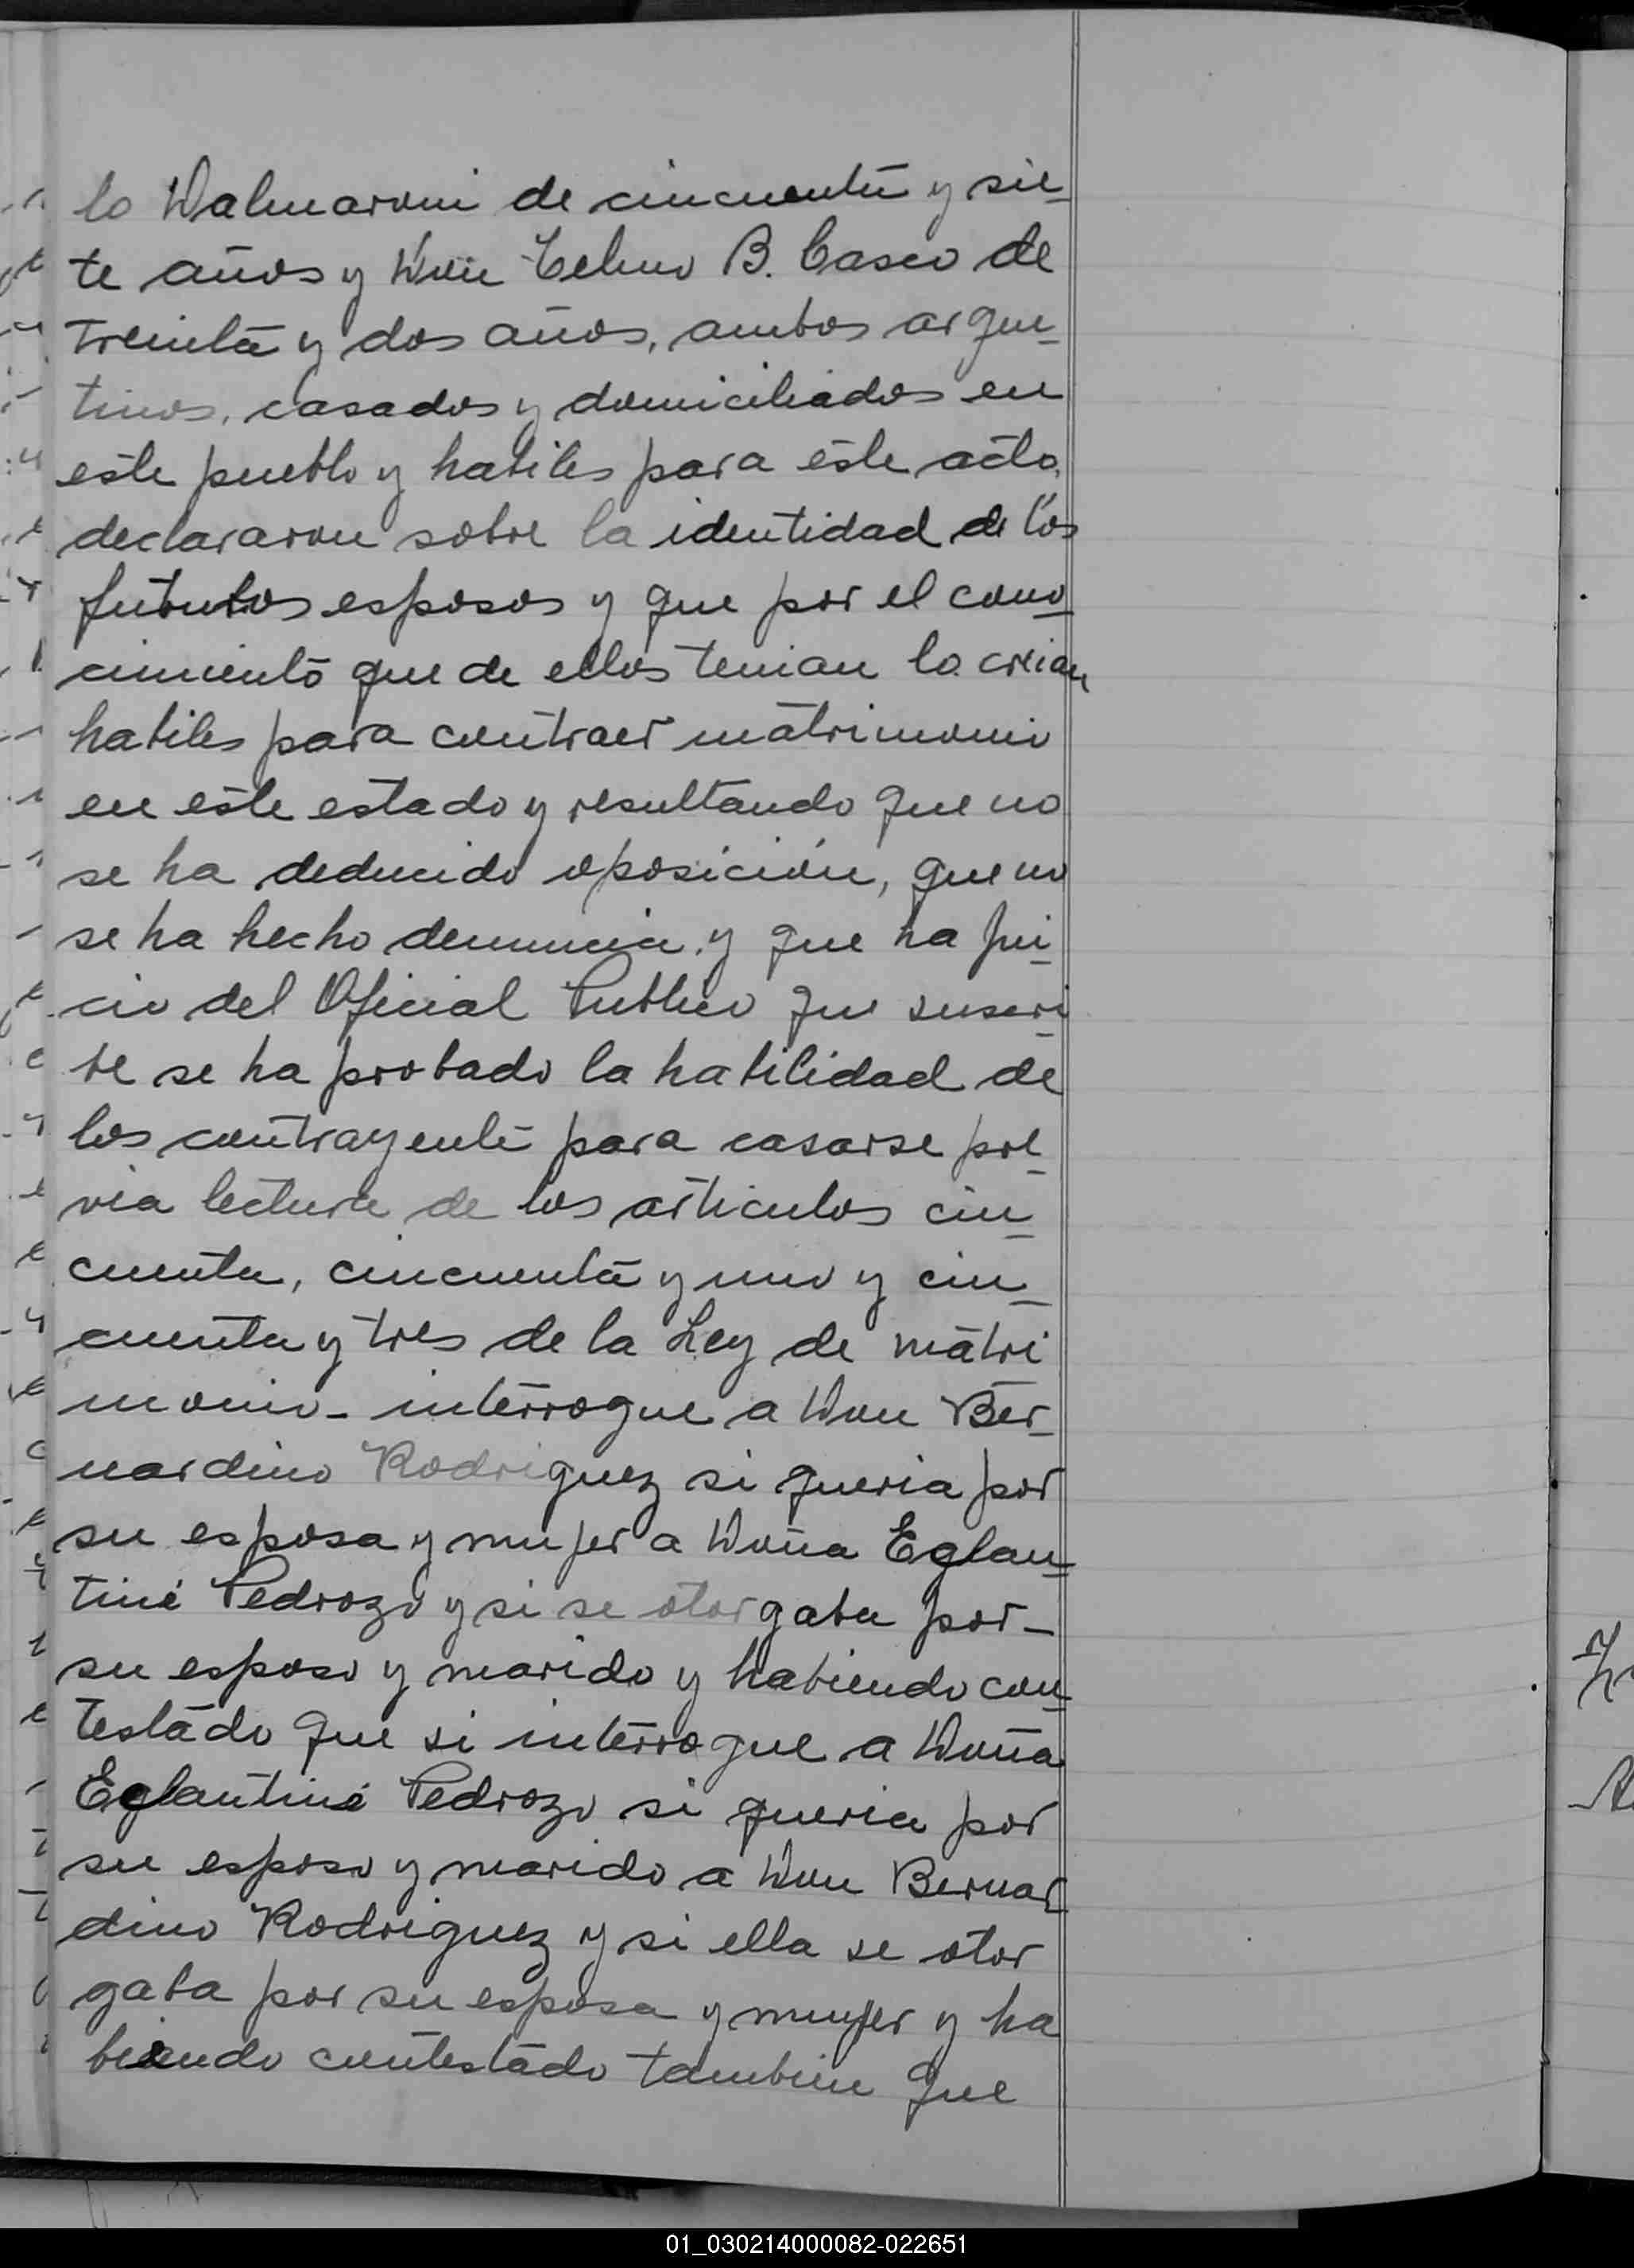 lo Dalmaroni de cincuenta y sie-
te años y Don Telmo B. Casco de
treinta y dos años, ambos argen-
tinos, casados y domiciliados en
este pueblo y habiles para este acto,
declararon sobre la identidad de los
futuros esposos y que por el cono-
cimiento que de ellos tenian lo creian
habiles para contraer matrimonio
en este estado y resultando que no
se ha deducido oposición, que no
se ha hecho denuncia y que ha jui-
cio del Oficial Publico que suscri-
be se ha probado la habilidad de
los contrayente para casarse pre-
via lectura de los articulos cin-
cuenta, cincuenta y uno y cin-
cuenta y tres de la Ley de matri
monio- interrogue a Don Ber-
nardino Rodriguez si queria por
su esposa y mujer a Doña Eglan-
tiné Pedrozo y si se otorgaba por-
su esposo y marido y habiendo con-
testado que si interrogue a Doña
Eglantiné Pedrozo si queria por
su esposo y marido a Don Bernar-
dino Rodriguez y si ella se otor
gaba por su esposa y mujer y ha
biendo contestado tambien que
01_030214000082-022651